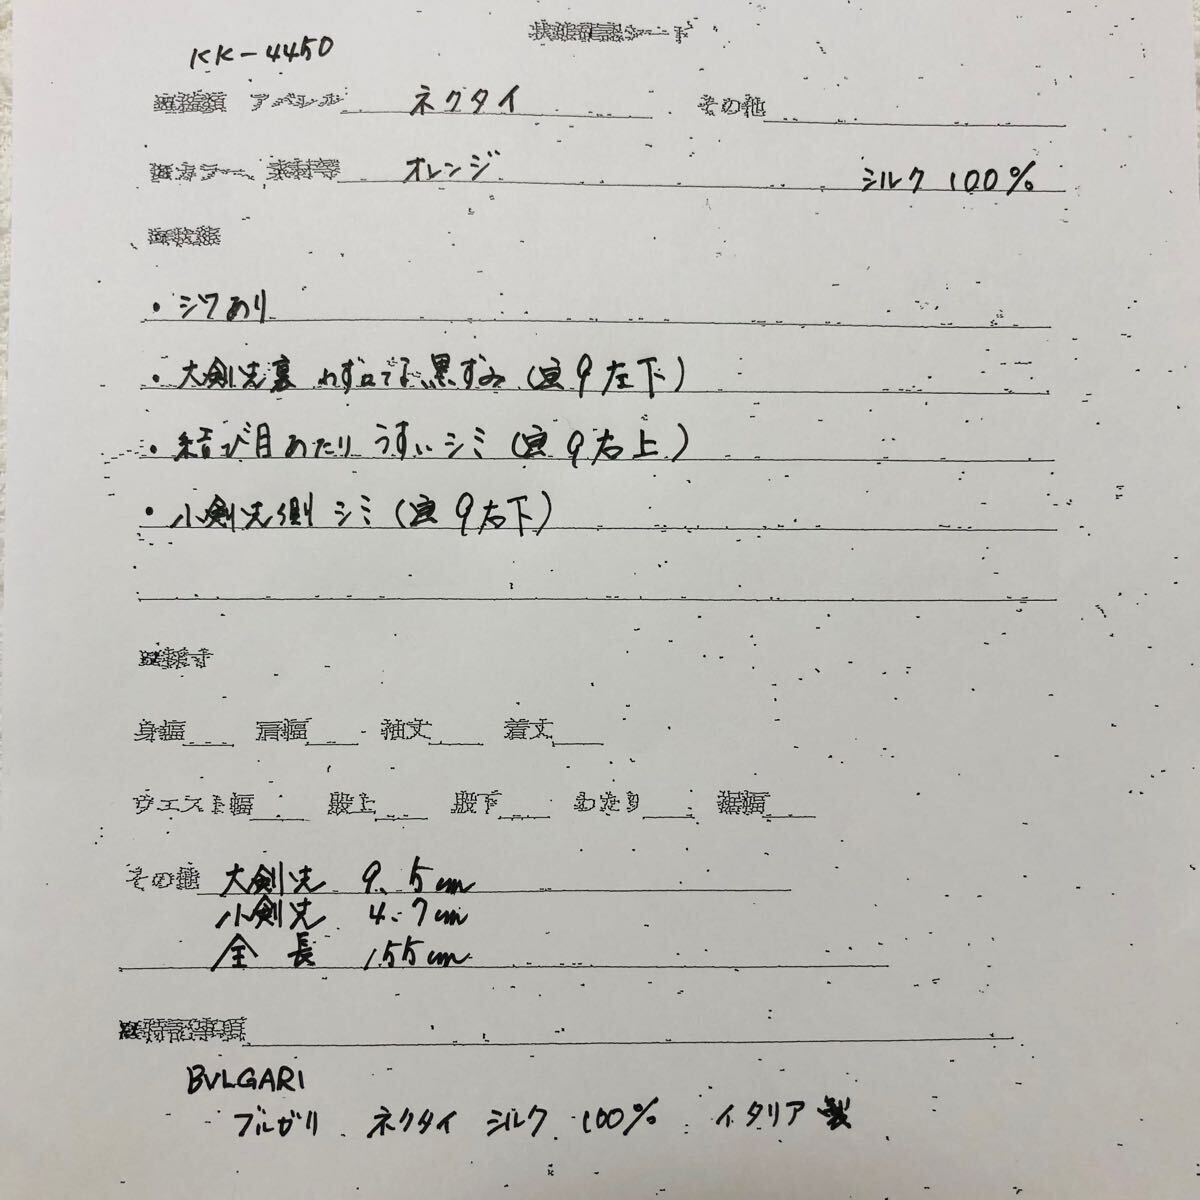 状態確認シート
KK-4450
アパレル ネクタイ その他
カラー、素材等 オレンジ シルク 100%
状態
・シワあり
・大剣先裏 わずかでるが黒ずみ (宜9左下)
・結び目あたり うすいシミ (宜9右上)
・小剣先側 シミ (宜9右下)
採寸
身幅 肩幅 袖丈 着丈
ウエスト幅 股上 股下 わたり 裾幅
その他 大剣先 9.5cm
小剣先 4.7cm
全長 155cm
特記事項
BVLGARI
ブルガリ ネクタイ シルク 100% イタリア製